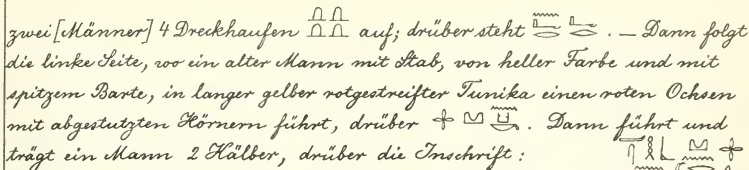 zwei [Männer] 4 Dreckhaufen auf; drüber steht . — Dann folgt
die linke Seite, wo ein alter Mann mit Stab, von heller Farbe und mit
spitzem Barte, in langer gelber rotgestreifter Tunika einen roten Ochsen
mit abgestutzten Hörnern führt, drüber . Dann führt und
trägt ein Mann 2 Kälber, drüber die Inschrift: